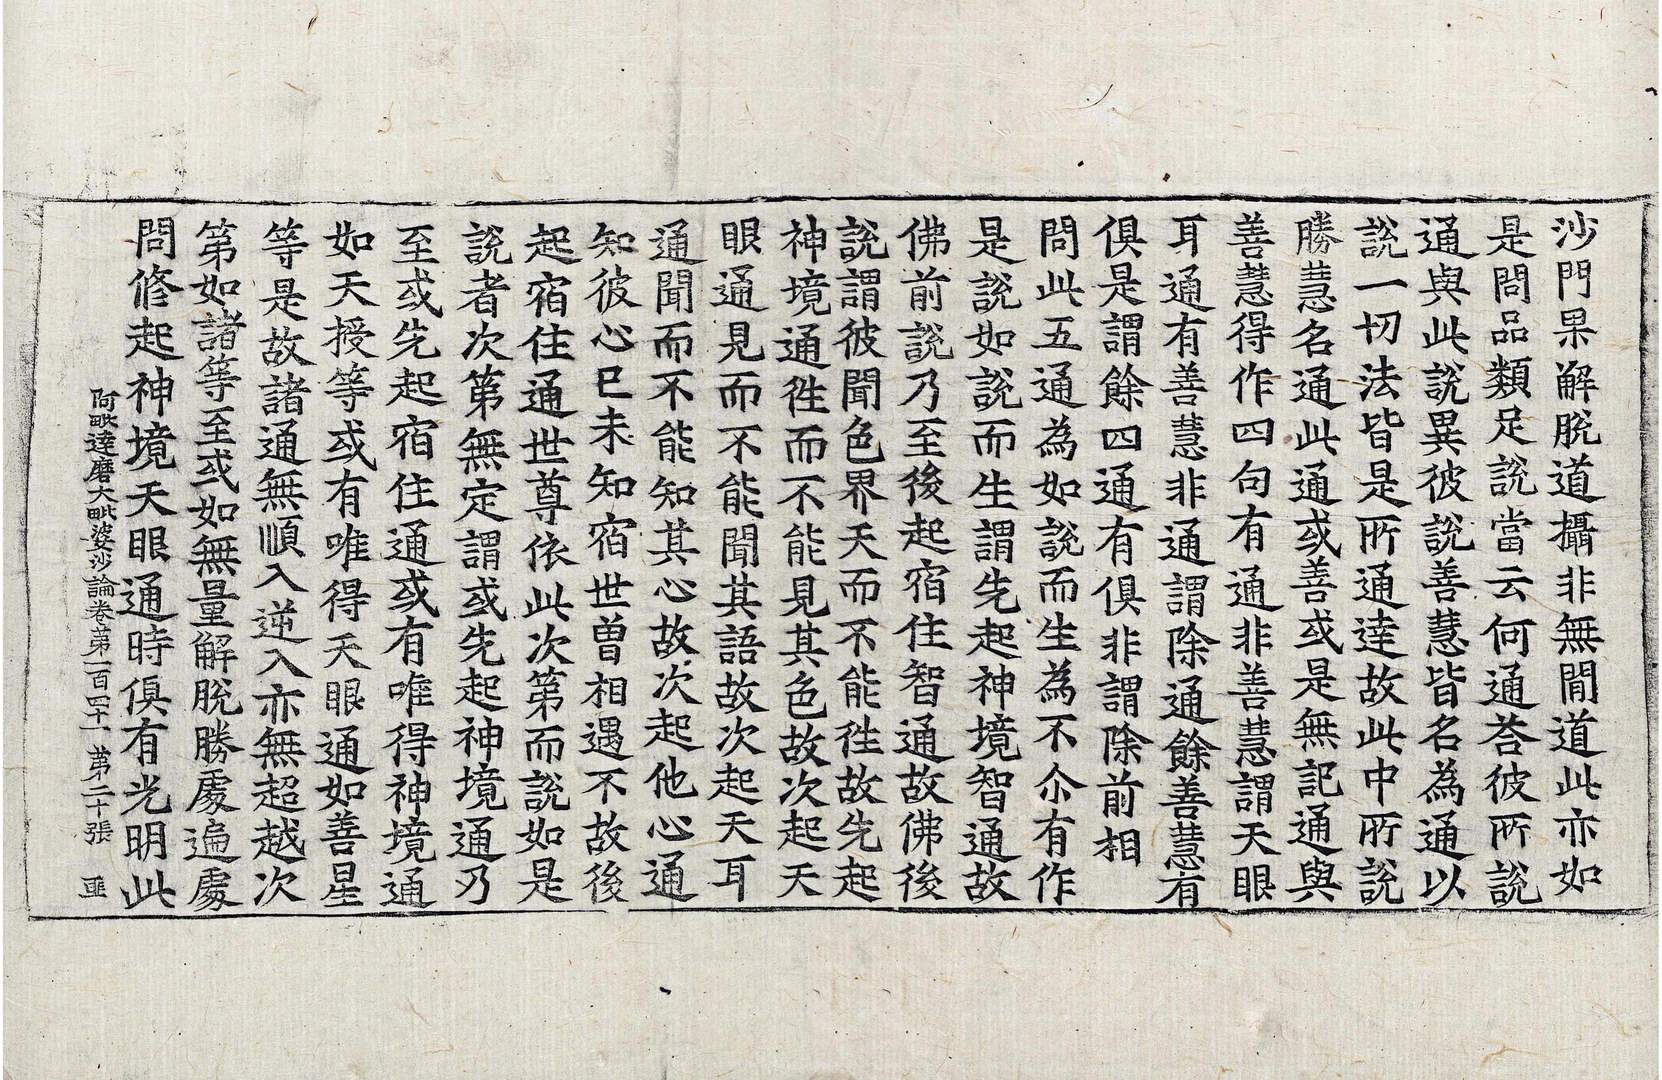 沙門果解脫道攝非無閒道此亦如
是問品類足說當云何通荅彼所說
通與此說異彼說善慧皆名為通以
說一切法皆是所通達故此中所說
勝慧名通此通或善或是無記通與
善慧得作四句有通非善慧謂天眼
耳通有善慧非通謂除通餘善慧有
俱是謂餘四通有俱非謂除前相
問此五通為如說而生為不尒有作
是說如說而生謂先起神境智通故
佛前說乃至後起宿住智通故佛後
說謂彼聞色界天而不能徃故先起
神境通徃而不能見其色故次起天
眼通見而不能聞其語故次起天耳
通聞而不能知其心故次起他心通
知彼心已未知宿世曽相遇不故後
起宿住通世尊依此次第而說如是
說者次第無定謂或先起神境通乃
至或先起宿住通或有唯得神境通
如天授等或有唯得天眼通如善星
等是故諸通無順入逆入亦無超越次
第如諸等至或如無量解脫勝處遍處
問修起神境天眼通時俱有光明此
阿毗達磨大毗婆沙論卷第一百四十一 第二十張 匪